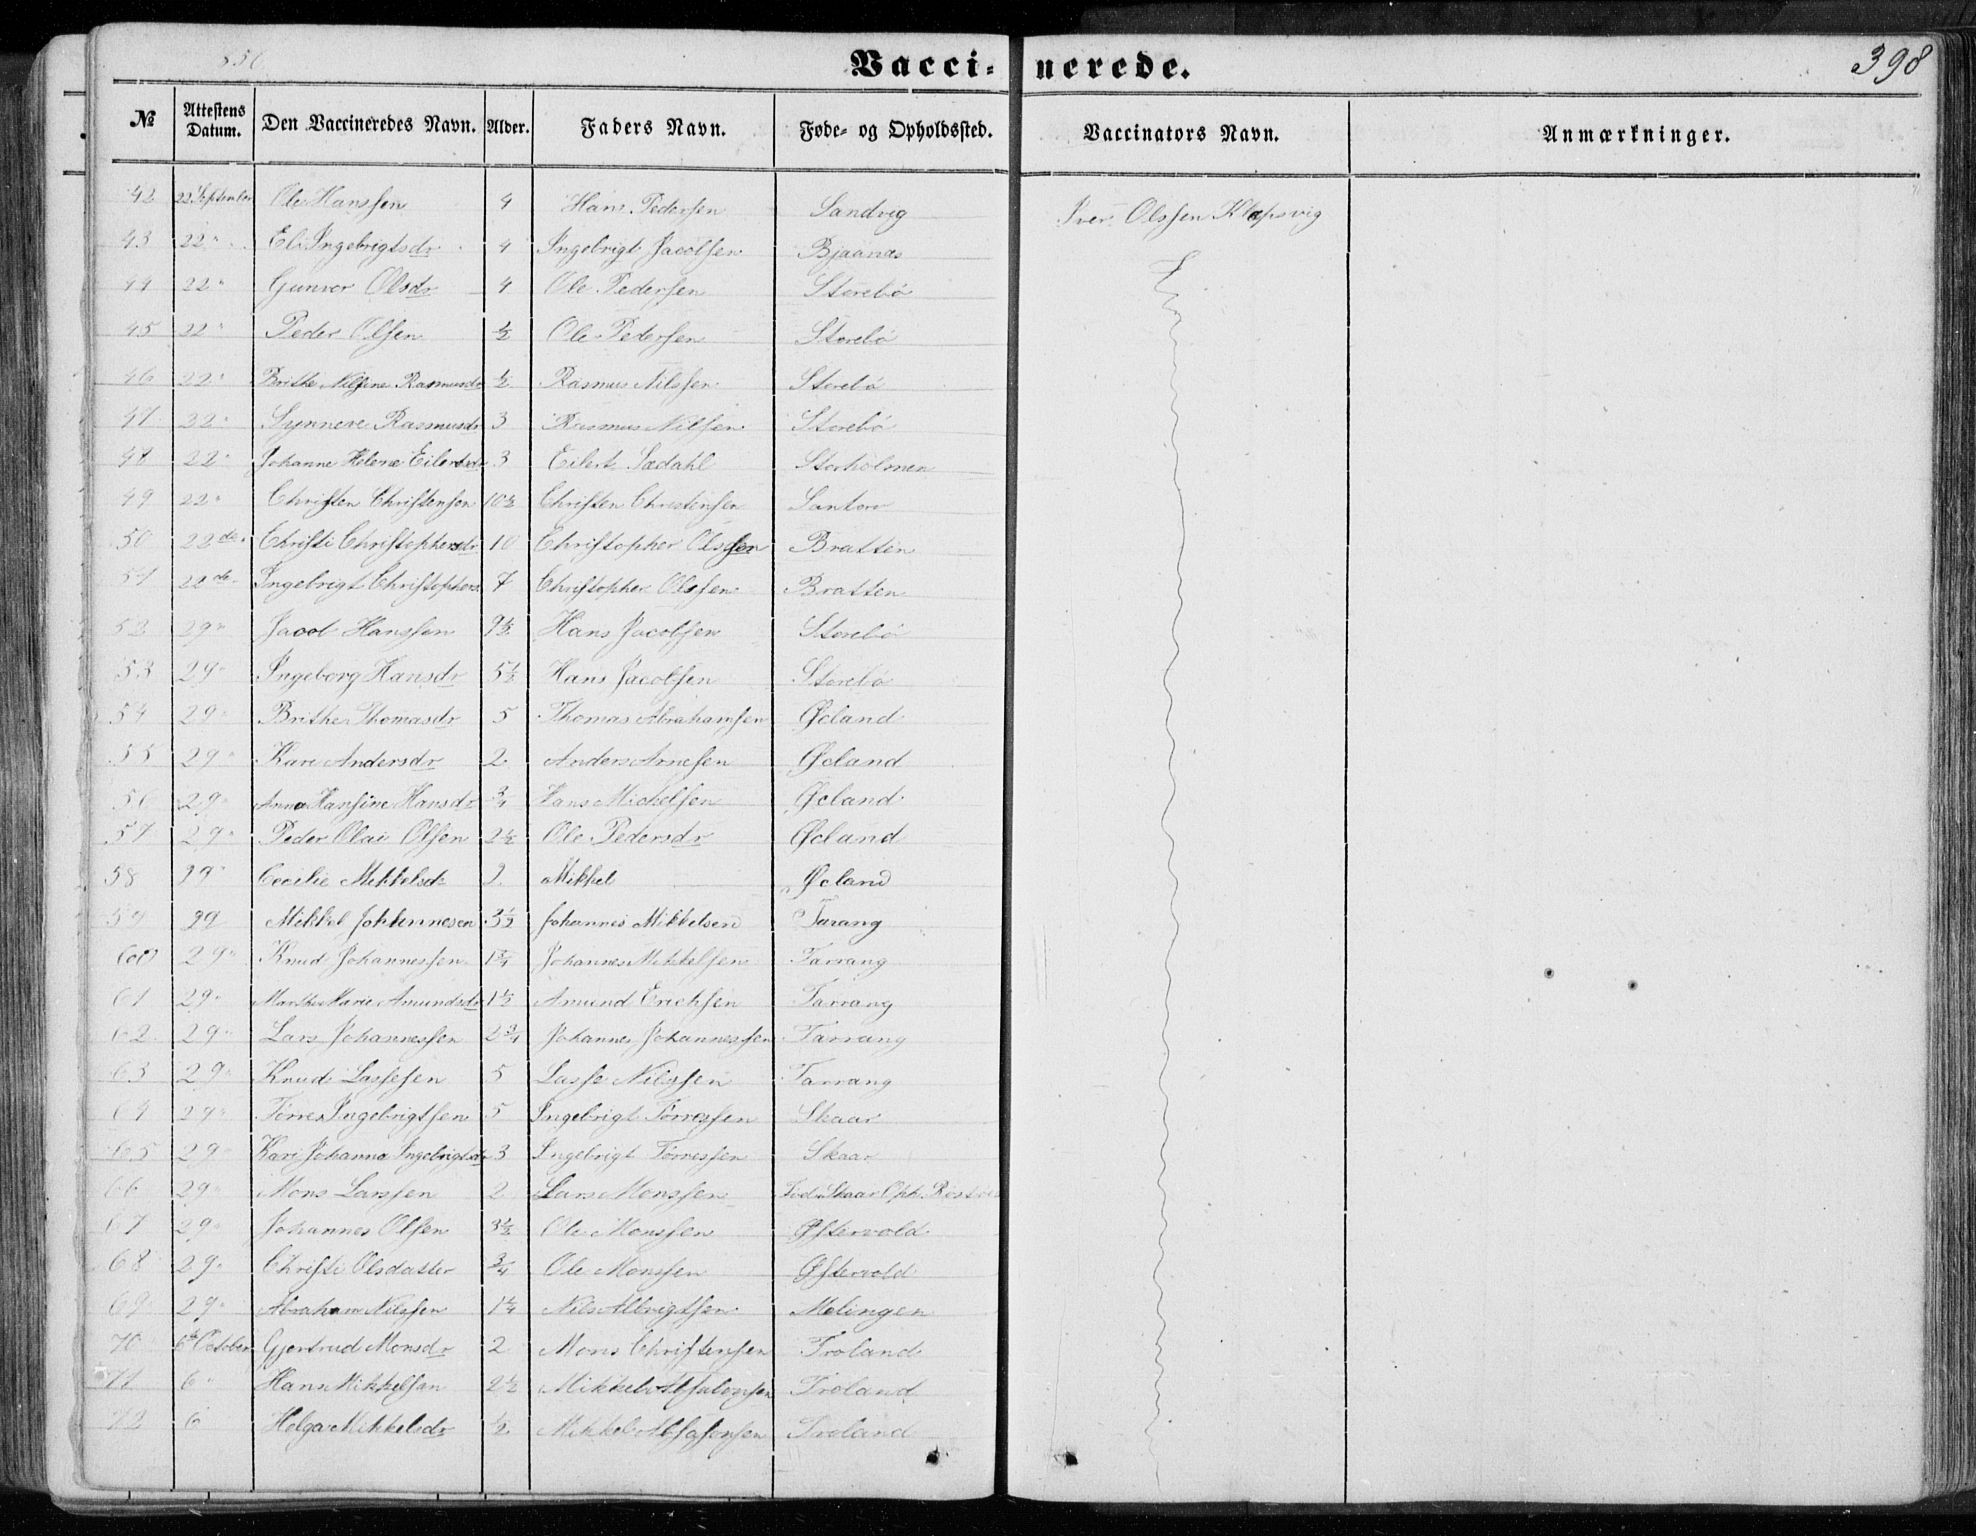 850
Vaccinerede.
398
№ Attestens Datum. Den Vaccineredes Navn. Alder. Faders Navn. Føde- og Opholdssted. Vaccinators Navn. Anmærkninger.
42 22 September Ole Hanssen 4 Hans Pedersen Sandvig Iver Olssen Klepsvig
43 22" Eli Ingebrigtsdr 4 Ingebrigt Jacobsen Bjaanæs
44 22" Gunvor Olsdr 4 Ole Pedersen Storebö
45 22" Peder Olsen ½ Ole Pedersen Storebö
46 22" Brithe Nilsine Rasmusdr ½ Rasmus Nilssen Storebö
47 22" Synneve Rasmusdr 3 Rasmus Nilsen Storebö
48 22" Johanne Helene Eilertsdr 3 Eilert Sædahl Storholmen
49 22" Christen Christenson 10½ Christen Christensen Santorv
50 22de Christi Christophersdr 10 Christopher Olssen Bratten
51 22de Ingebrigt Christophers 7 Christopher Olssen Bratten
52 29" Jacob Hanssen 9½ Hans Jacobsen Storebö
53 29" Ingeborg Hansdr 5½ Hans Jacobsen Storebö
54 29" Brithe Thomasdr 5 Thomas Abrahamsen Øcland
55 29" Kari Andersdr 2 Anders Arnesen Øcland
56 29" Anna Hansine Hansdr ¾ Hans Michelsen Øcland
57 29" Peder Olai Olsen 2½ Ole Pedersdr Øcland
58 29" Cecilie Mikkelsdr 2 Mikkel Øcland
59 29 Mikkel Johannesen 3½ Johannes Mikkelsen Tarang
60 29" Knud Johannessen 1¾ Johannes Mikkelsen Tarrang
61 29" Marthe Marie Amundsdr 1½ Amund Erichsen Tarrang
62 29" Lars Johannessen 2¾ Johannes Johannessen Tarrang
63 29" Knud Lassesen 5 Lasse Nilssen Tarrang
64 29" Torres Ingebrigtsen 5 Ingebrigt Torressen Skaar
65 29" Kari Johanna Ingebrigtsdr 3 Ingebrigt Torressen Skaar
66 29" Mons Larssen 2 Lars Monssen Föd: Skaar Oph.
67 29" Johannes Olsen 3½ Ole Monssen Østervold
68 29" Christi Olsdatter ¾ Ole Monssen Østervold
69 29" Abraham Nilssen 1¼ Nils Albrigtsen Melingen
70 6te October Gjertrud Monsdr 2 Mons Christensen Troland
71 6" Hans Mikkelsen 2½ Mikkel Absalonsen Troland
72 6 Helga Mikkelsdr ½ Mikkel Absalonsen Troland